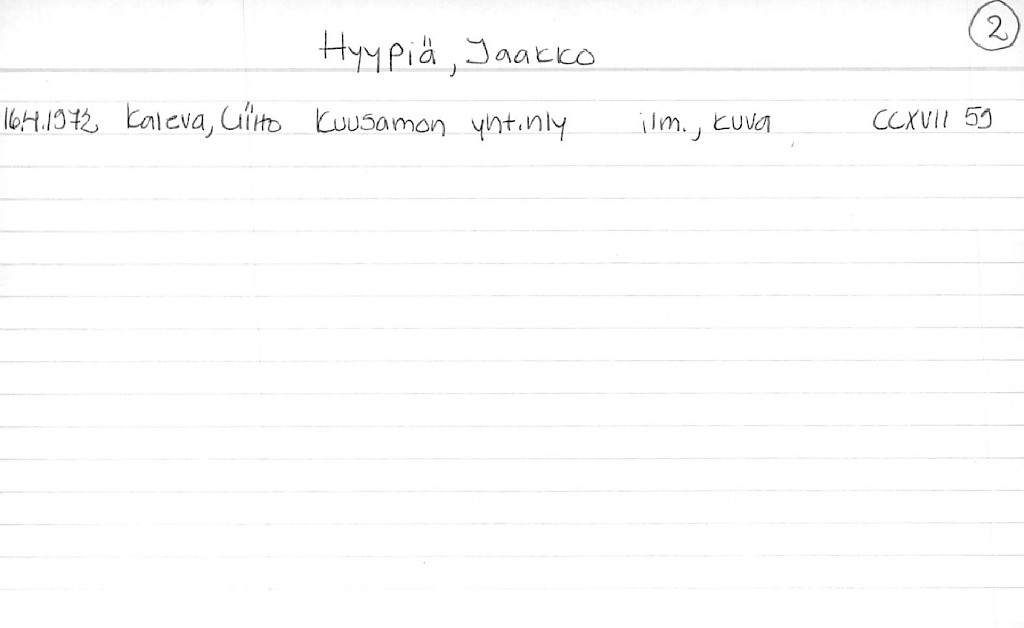 2
Hyypiä, Jaakko
16.4.1972 Kaleva, Liitto Kuusamon yht.nly ilm., kuva CCXVII 59